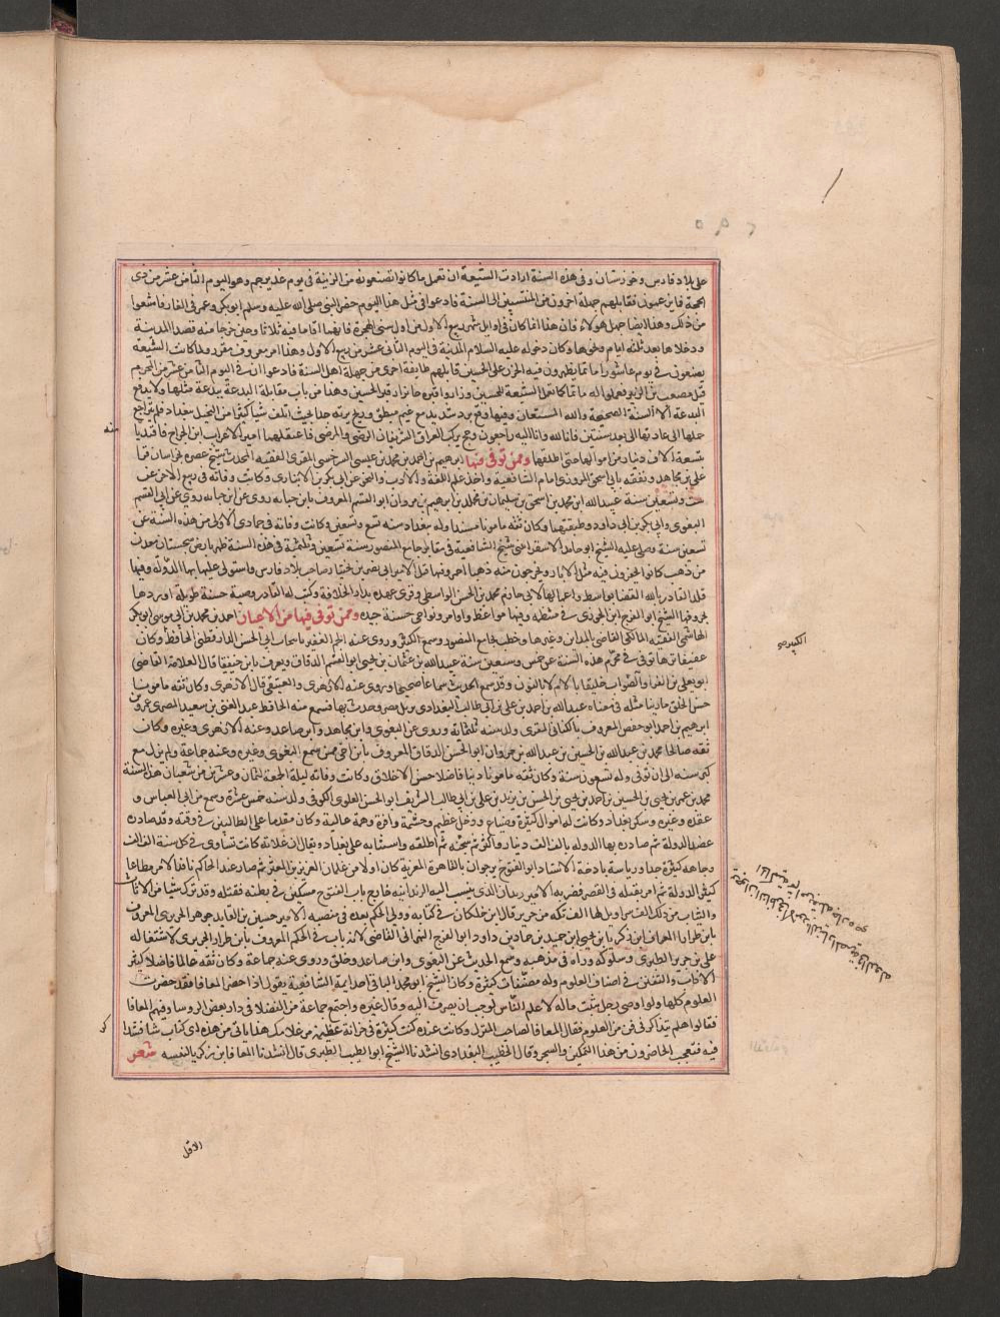 على بلاد فارس وخوزستان وفى هذه السنة ارادت الشيعة ان تعمل ما كانوا تصنعونه من الزينة فى يوم غدير خم وهو اليوم الثامن عشر من ذى
الحجة فقابلهم جهلة اخرون من المنتسبين الى السنة فادعوا فى مثل هذا اليوم حضر النبى صلى الله عليه وسلم ابو بكر وعمر فى الغار فامتنعوا
من ذلك وهذا ايضا جهل من هؤلاء فان هذا انما كان فى اوايل شهر ربيع الاول من اول سنى الهجرة فانهما اقاما فيه ثلاثا وحين خرجا منه قصدا المدينة
ودخلاها بعد ثلثه ايام ونحوها وكان دخوله عليه السلام المدينة فى اليوم الثانى عشر من ربيع الاول وهذا امر معروف مقرر ولما كانت الشيعة
يصنعون فى يوم عاشورا ماتما يظهرون فيه الحزن على الحسين قابلهم طايفة اخرى من جهلة اهل السنة فادعوا ان فى اليوم الثامن عشر من المحرم
قتل مصعب بن الزبير فعملوا له ماتما كما تعمل الشيعة للحسين وزاروا قبره كما زاروا قبر الحسين وهذا من باب مقابلة البدعة ببدعة مثلها ولا يدفع
البدعة الا السنة الصحيحة والله المستعان وفيها وقع برد شديد مع غيم مطبق وريح قوية جدا بحيث اتلف شيا كثيرا من النخيل ببغداد فلم يتراجع
حملها الى عادتها الى بعد سنتين فانا لله وانا اليه راجعون وحج بركب العراق الشريفان الرضى والمرضى فاعتقلهما امير الاعراب ابن الجراح فافتديا
بتسعة الاف دينار من اموالهما حتى اطلقهما وممن توفى فيها ابرهيم بن احمد بن محمد بن عيسى السرخسى المقرى الفقيه المحدث شيخ عصره بخراسان قرا
على بن مجاهد وتفقه بابى اسحق المروزى امام الشافعية واخذ علم اللغة والادب والنحو عن ابى بكر بن الانبارى وكانت وفاته فى ربيع الاخر عن
ست وتسعين سنة عبيد الله ابن محمد بن اسحق بن سليمان بن مخلد بن ابرهيم بن مروان ابو القسم المعروف بابن حبابه روى عن ابى القسم
البغوى وابى بكر بن ابى داود وطبقتهما وكان ثقه مامونا مسندا ولد ببغداد سنه تسع وتسعين وكانت وفاته فى جمادى الاولى من هذه السنة عن
تسعين سنة وصلى عليه الشيخ ابو حامد الاسفراينى شيخ الشافعية فى مقابر جامع المنصور سنة تسعين وثلثمية فى هذه السنة ظهر بارض سجستان معدن
من ذهب كانوا يحفرون فيه مثل الابار ويخرجون منه ذهبا احمر وفيها قتل الامير ابى نصر بن بختيار صاحب بلاد فارس واستولى عليها بها الدوله وفيها
قلد القادر بالله القضا بواسط واعمالها لابى حازم محمد بن الحسن الواسطى وقرى عهده بدار الخلافة وكتب له القادر وصية حسنة طويله اوردها
بحروفها الشيخ ابو الفرج ابن الجوزى فى منتظمه وفيها مواعظ واوامر ونواهى حسنة جيده وممن توفى فيها من الاعيان احمد بن محمد بن ابى موسى ابو بكر
الهاشمى الفقيه المالكى القاضى بالمداين وغيرها وخطب بجامع المنصور وسمع الكثير وروى عنه الجم الغفير بانتخاب ابى الحسن الدارقطنى الحافظ وكان
عفيفا نزها توفى فى محرم هذه السنة عن خمس وسبعين سنة عبيد الله بن عثمان بن يحيى ابو القسم الدقاق ويعرف بابن جنيقا قال العلامة القاضى
ابو يعلى بن الفرا والصواب جليقا باللام لا بالنون وقد سمع الحديث سماعا صحيحا وروى عنه الازهرى والعتيقى قال الازهرى وكان ثقه مامونا
حسن الخلق ما راينا مثله فى معناه عبد الله بن احمد بن على بن ابى طالب البغدادى نزيل مصر وحدث بها فسمع منه الحافظ عبد الغنى بن سعيد المصرى عمر بن
ابرهيم بن احمد ابو حفص المعروف بالكتانى المقرى ولد سنه ثلثمايه وروى عن البغوى وابن مجاهد وابن صاعد وعنه الازهرى وغيره وكان
ثقه صالحا محمد بن عبد الله بن الحسين بن عبد الله بن هرون ابو الحسن الدقاق المعروف بابن اخى ميمى سمع البغوى وغيره وعنه جماعة ولم يزل مع
كبر سنه الى ان توفى وله تسعون سنة وكان ثقه مامونا دينا فاضلا حسن الاخلاق وكانت وفاته ليلة الجمعة لثمان وعشرين من شعبان هذه السنة
محمد بن عمر بن يحيى بن الحسين بن احمد بن يحيى بن الحسين بن زيد بن على بن ابى طالب الشريف ابو الحسن العلوى الكوفى ولد سنه خمس عشرة وسمع من ابى العباس و
عقده وغيره وسكن بغداد وكانت له اموال كثيرة وضياع ودخل عظيم وحشمة وافرة وهمة عالية وكان مقدما على الطالبين فى وقته وقد صادره
عضد الدولة ثم صادره بها الدوله بالف الف دينار واكثر ثم سجنه ثم اطلقه واستنابه على بغداد ويقال ان غلاته كانت تساوى فى كل سنة الفى الف
وجاهه كثيرة جدا ورياسة باذخة الاستاد ابو الفتوح برجوان بالقاهرة المعزية كان اولا من غلمان العزيز بن المعز ثم صار عند الحاكم نافذ الامر مطاعا
كبير فى الدولة ثم امر بقتله فى القصر فضربه الامير ريدان الذى ينسب اليه الريدانيه خارج باب الفتوح بسكين فى بطنه فقتله وقد ترك شيا من الاثاث
والثياب من ذلك الف سراويل بها الف تكه من حرير قال ابن خلكان فى كتابه وولى الحاكم بعده فى منصبه الامير حسين بن القايد جوهر الجريرى المعروف
بابن طرارا المعافى ابن زكريا بن يحيى ابن حميد بن حماد بن داود ابو الفرج النهروانى القاضى لانه ناب فى الحكم المعروف بابن طرارا الجريرى لاشتغاله
على بن جرير الطبرى وسلوكه وراه فى مذهبه وسمع الحديث عن البغوى وابن صاعد وخلق وروى عنه جماعة وكان ثقه عالما فاضلا كثير
الاداب والتفنن فى اصناف العلوم وله مصنفات كثيرة وكان الشيخ ابو محمد الباقى احد ايمة الشافعية يقول اذا حضر المعافا فقد حضرت
العلوم كلها ولو اوصى رجل بثلث ماله لاعلم الناس لوجب ان يصرف اليه وقال غيره واجتمع جماعة من الفضلا فى دار بعض الروسا وفيهم المعافا
فقالوا هلم نتذاكر فى فن من العلوم فقال المعافا لصاحب المنزل وكانت عنده كتب كثيرة فى خزانة عظيمة مر غلامك هذا ياتى من هذه اى كتاب شا فننظر
فيه فتعجب الحاضرون من هذا التمكين والتبحر وقال الخطيب البغدادى انشدنا الشيخ ابو الطيب الطبرى قال انشدنا المعافا بن زكريا لنفسه شعر
الاقل